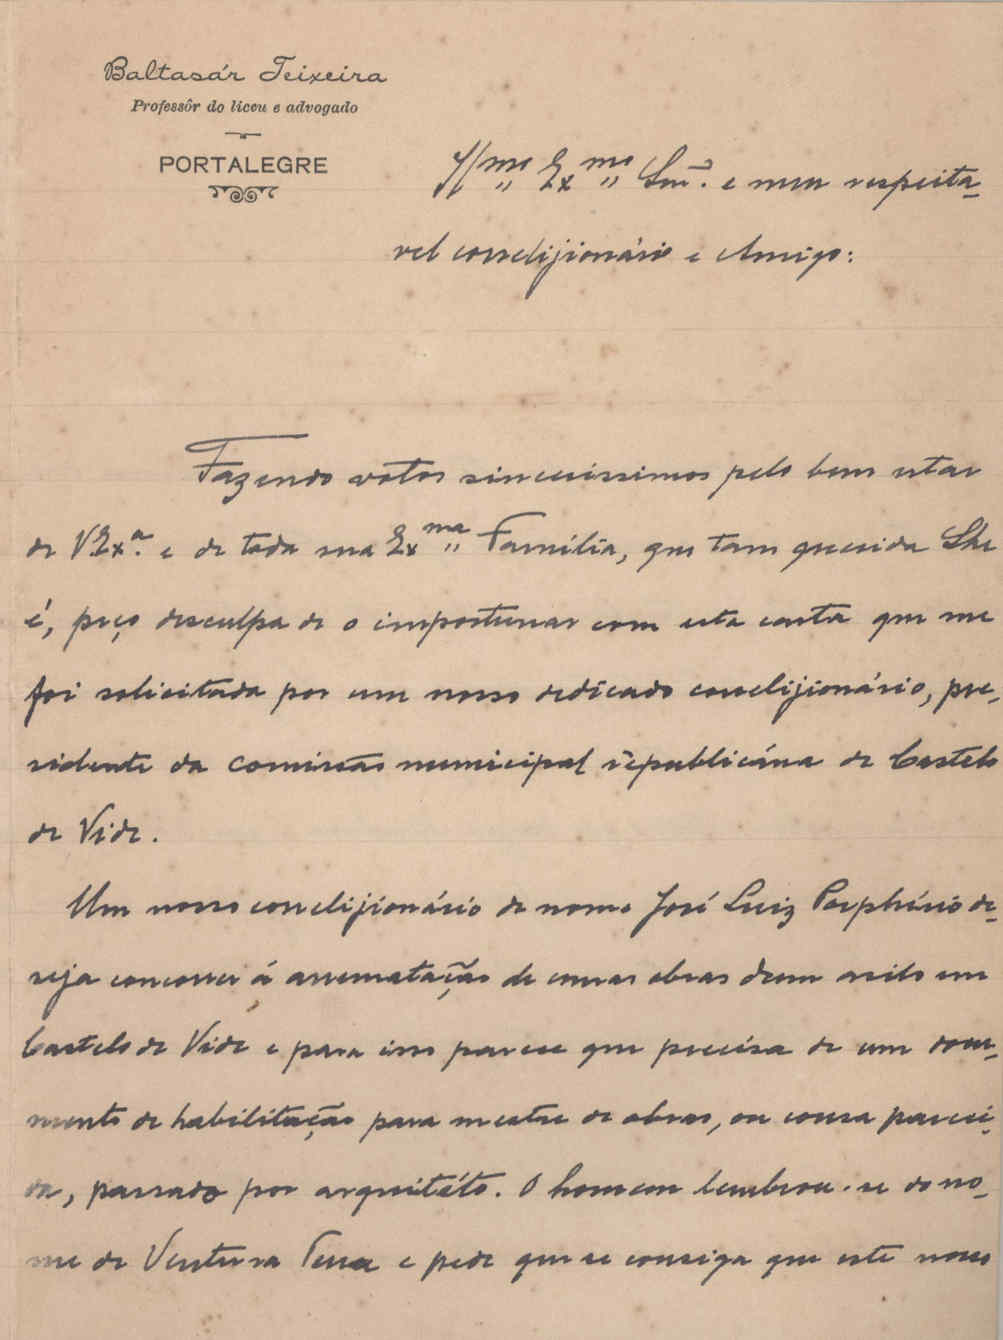 Baltasár Teixeira
Professôr do liceu e advogado
PORTALEGRE
Ilmo Exmo Snr. e meu respeita-
vel correlijionário e Amigo:
Fazendo votos sincerissimos pelo bem estar
de V. Exa. e de toda sua Exma Família, que tam querida Lhe
é, peço desculpa de o importunar com esta carta que me
foi solicitada por um nosso dedicado correlijionário, pre-
sidente da comissão municipal republicána de Castelo
de Vide.
Um nosso correlijionário de nome José Luiz Porphírio de-
seja concorrer á arrematação de umas obras dum asilo em
Castelo de Vide e para isso parece que precisa de um docu-
mento de habilitação para mestre de obras, ou cousa pareci-
da, passado por arquitéto. O homem lembrou-se do no-
me de Ventura Terra e pede que se consiga que este nosso